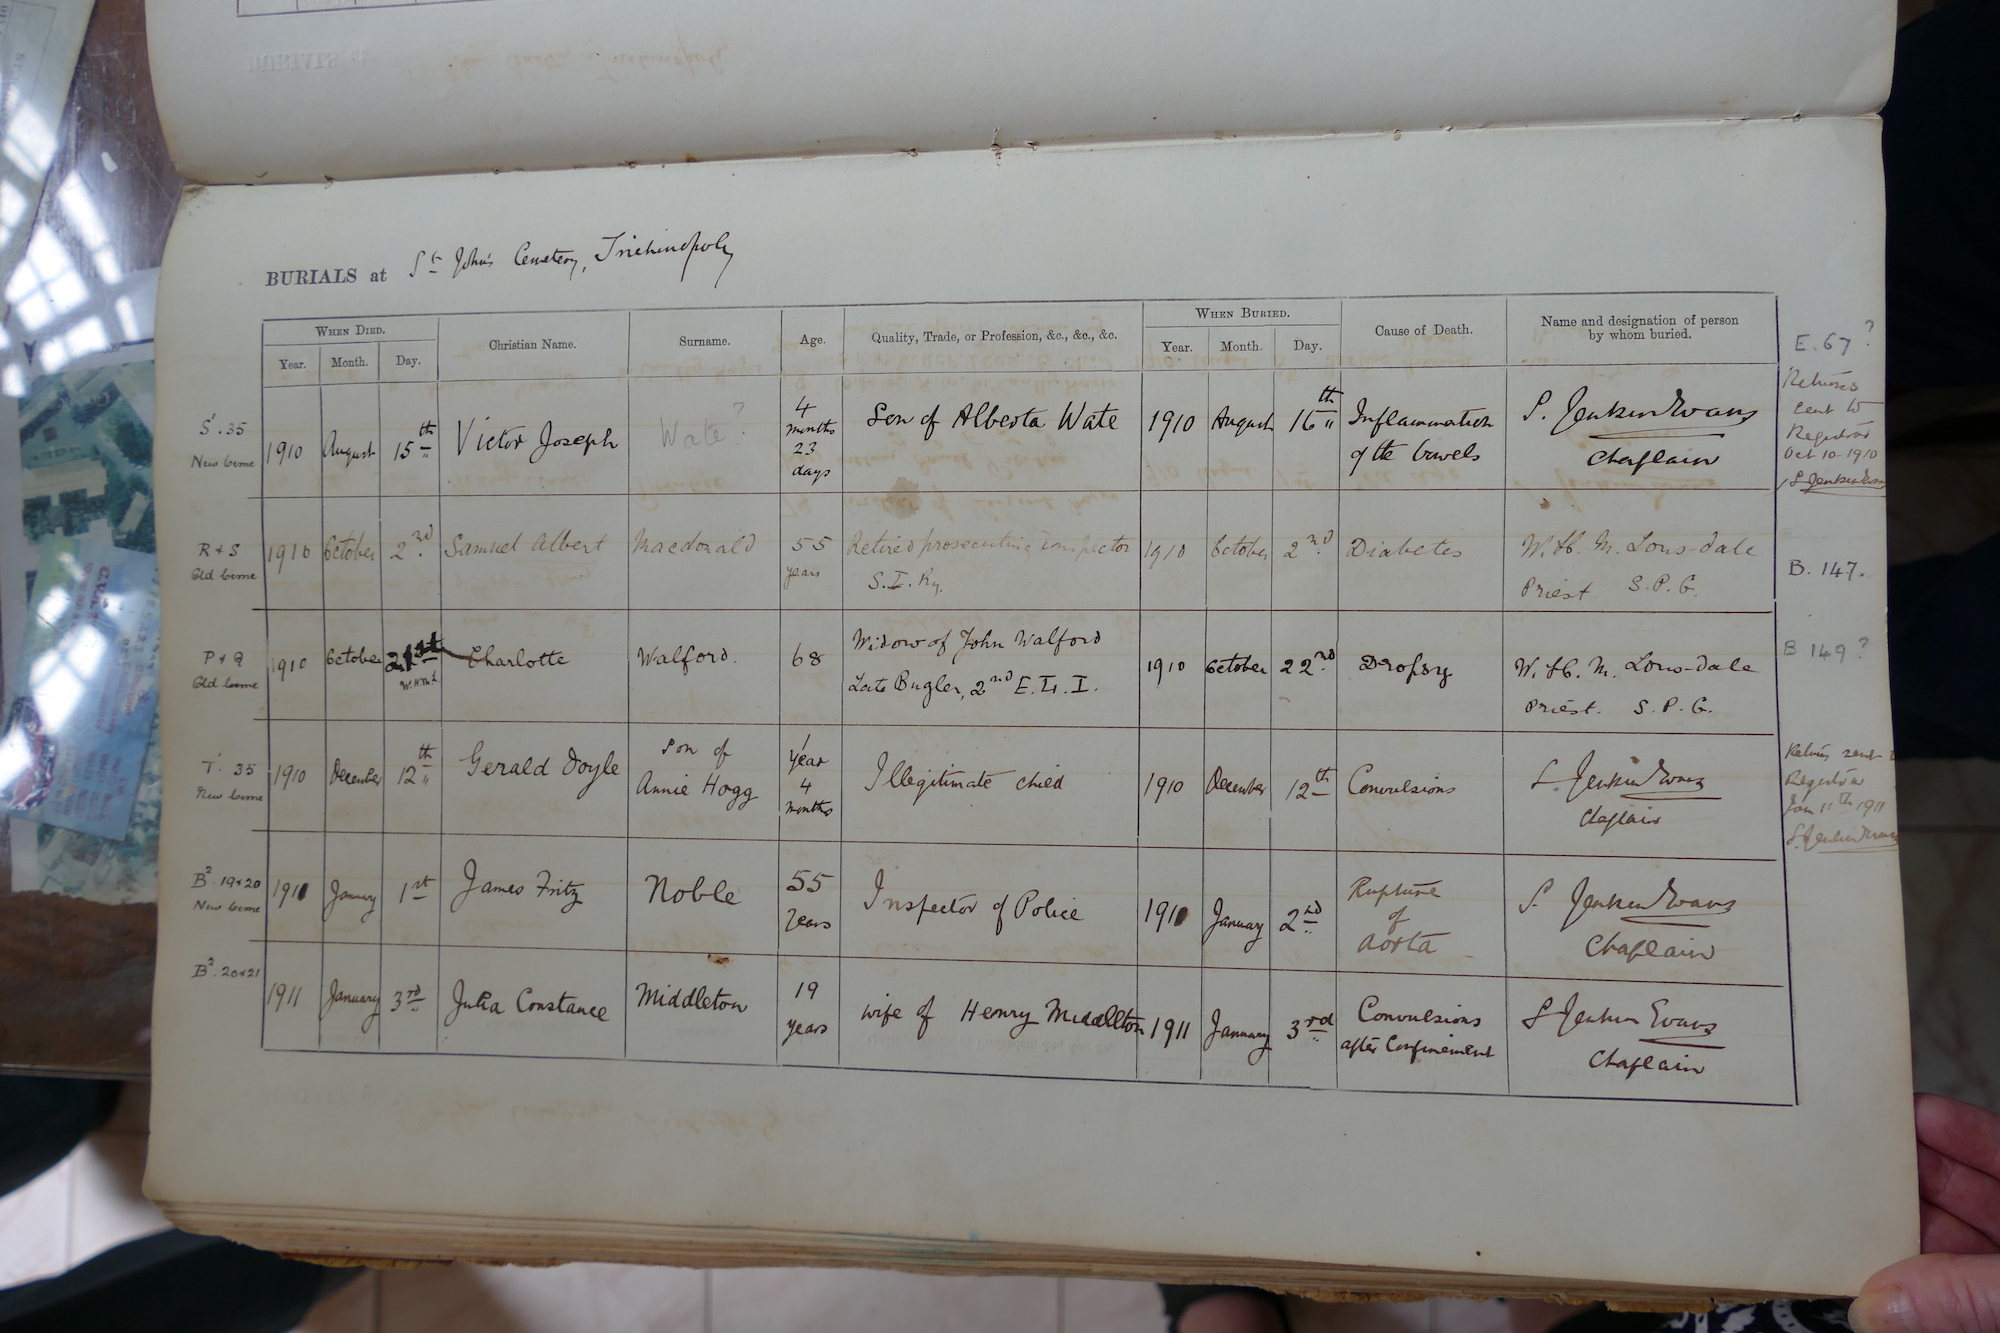 BURIALS at St John's Cemetery, Trichinopoly
When Died.
Year. Month. Day.
Christian Name.
Surname.
Age.
Quality, Trade, or Profession, &c., &c., &c.
When Buried.
Year. Month. Day.
Cause of Death.
Name and designation of person
by whom buried.
E. 67 ?
S' . 35
New Ceme
1910 August 15th Victor Joseph Wate ?
4
months
23
days
Son of Alberta Wate
1910 August 16th
Inflammation
of the bowels
S. Jenkin Evans
Chaplain
Returns
sent to
Registrar
Oct 10 - 1910
S Jenkin Evans
R & S
Old Ceme
1910 October 2nd. Samuel Albert Macdonald
55
years
Retired prosecuting Inspector
S. I. Ry.
1910 October 2nd. Diabetes
W. H. M. Lonsdale
Priest S. P. G.
B. 147.
P & Q
Old Ceme
1910 October 21st
W. H. M. L.
Charlotte Walford. 68
Widow of John Walford
Late Bugler, 2nd E. L. I.
1910 October 22nd Dropsy
W. H. M. Lonsdale
Priest. S. P. G.
B 149 ?
T' . 35
New Ceme
1910 December 12th Gerald Doyle
son of
Annie Hogg
1
year
4
months
Illegitimate child
1910 December 12th Convulsions
S. Jenkin Evans
Chaplain
Return sent
Registrar
Jan 11th 1911
S. Jenkin Evans
B2 . 19 & 20
New Ceme
1911 January 1st James Fritz Noble
55
years
Inspector of Police
1911 January 2nd
Rupture
of
aorta
S. Jenkin Evans
Chaplain
B2 . 20 & 21
1911 January 3rd Julia Constance Middleton
19
years
wife of Henry Middleton
1911 January 3rd
Convulsions
after Confinement
S Jenkin Evans
Chaplain